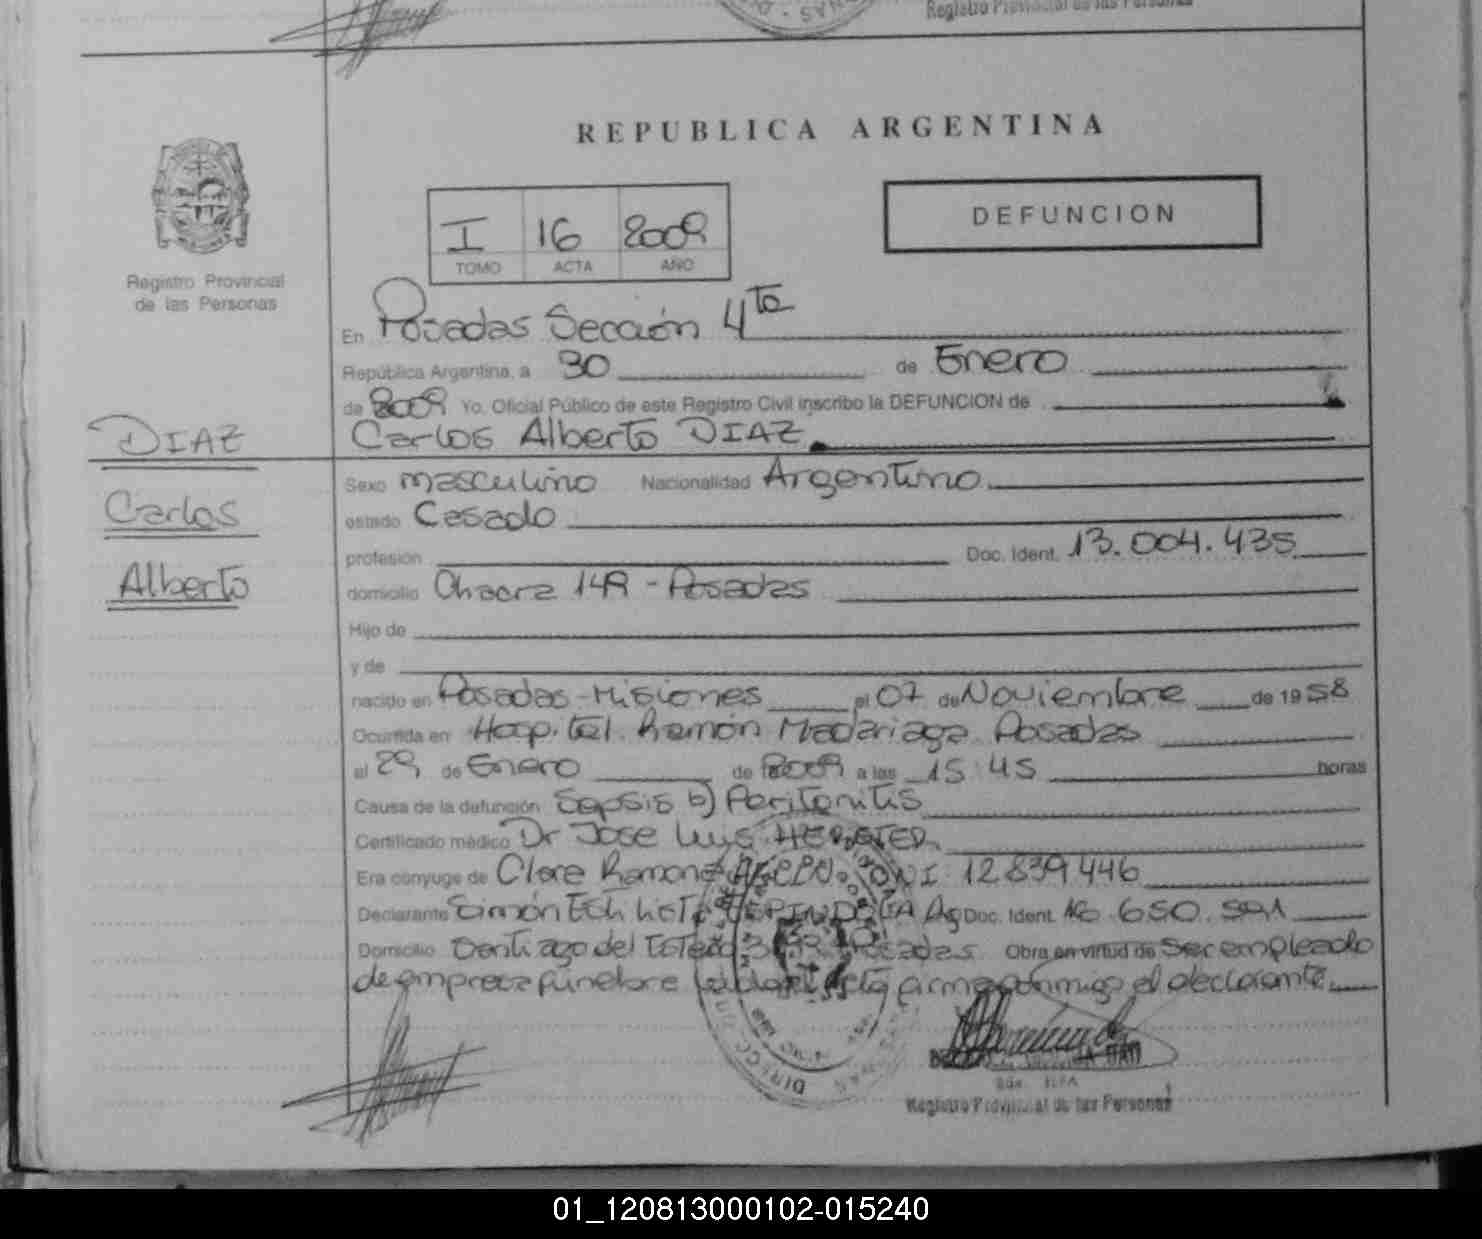 Registro Provincial de las Personas
REPUBLICA ARGENTINA
DEFUNCION
I 16 2009
TOMO ACTA AÑO
Registro Provincial
de las Personas
En Posadas Sección 4ta
República Argentina, a 30 de Enero
de 2009 Yo, Oficial Público de este Registro Civil inscribo la DEFUNCION de
Carlos Alberto DIAZ
DIAZ
Carlos
Alberto
Sexo masculino Nacionalidad Argentino
estado Casado
profesión Doc. Ident. 13.004.435
domicilio Chacra 149 - Posadas
Hijo de
y de
nacido en Posadas - Misiones el 07 de Noviembre de 1958
Ocurrida en Hospital Ramón Madariaga Posadas
el 29 de Enero de 2009 a las 15:45 horas
Causa de la defunción Sepsis b) Peritonitis
Certificado médico Dr Jose Luis
Era cónyuge de Clara Ramona DNI 12839446
Declarante Simón Doc. Ident. 16.650.591
Domicilio Santiago del Estero Posadas Obra en virtud de ser empleado
de empresa funebre firma conmigo el declarante
Registro Provincial de las Personas
01_120813000102-015240